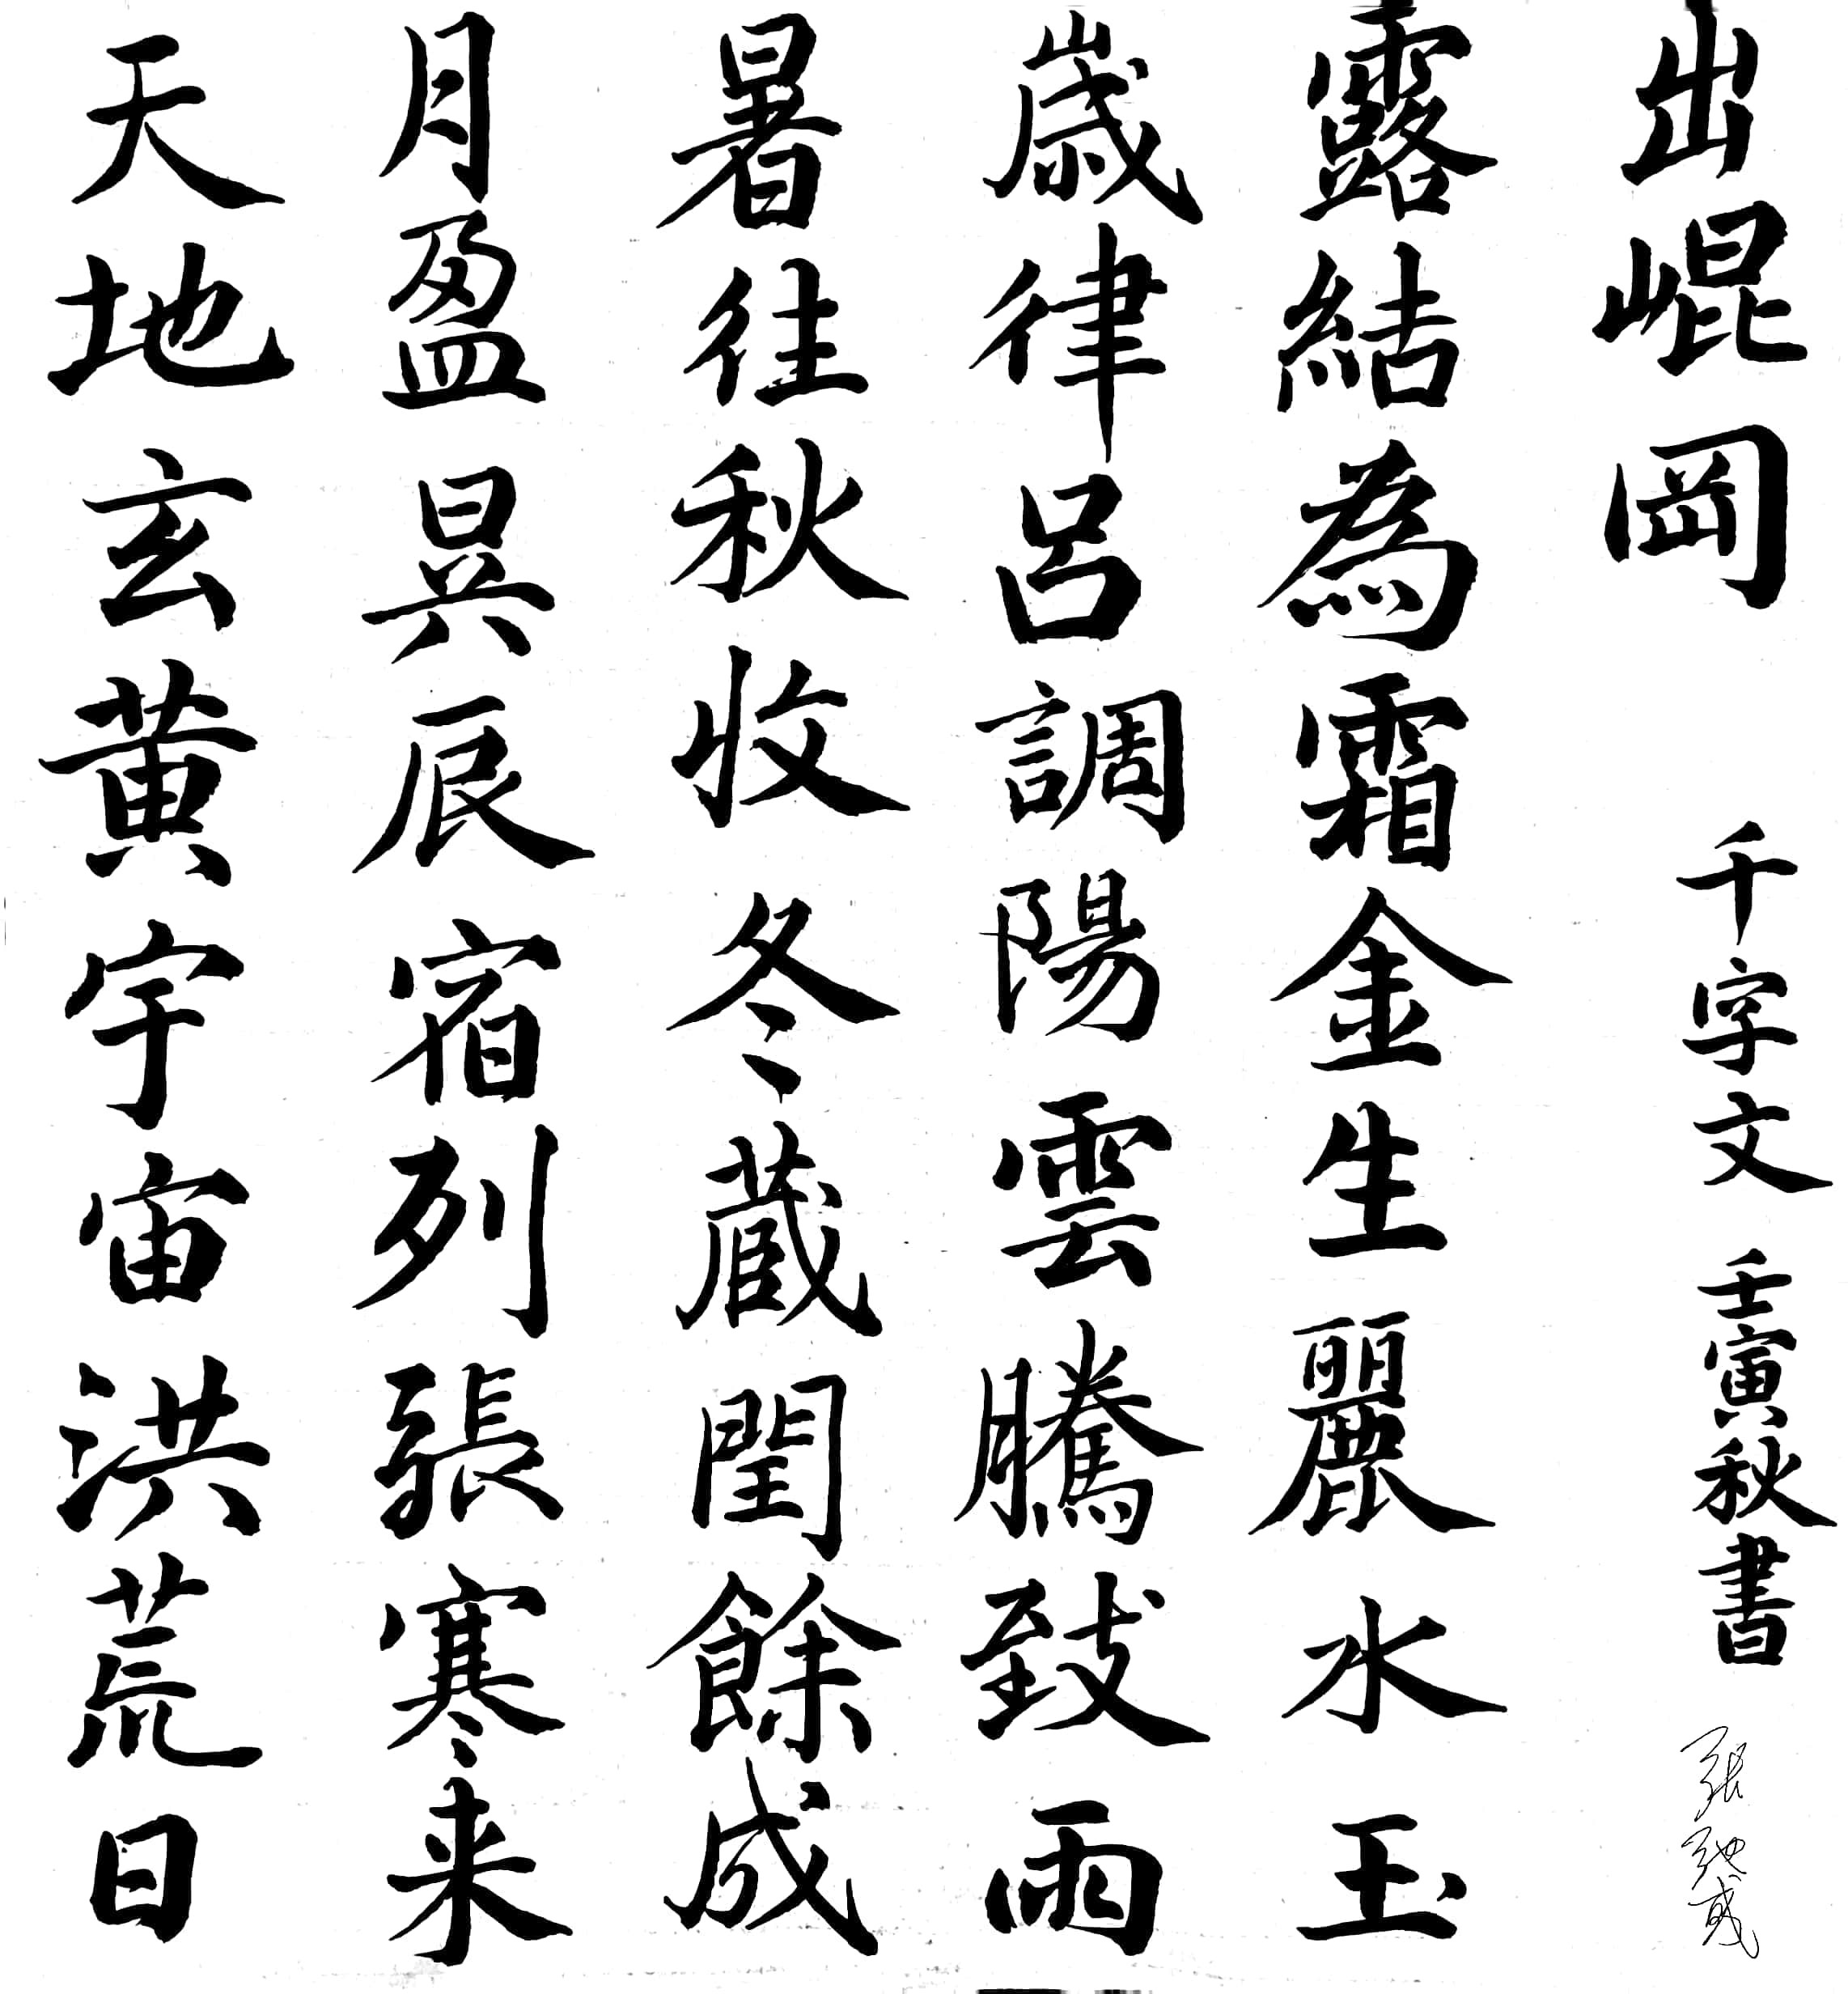 天地玄黄宇宙洪荒日
月盈昃辰宿列張寒来
暑往秋收冬蔵閏餘成
歲律呂調陽雲騰致雨
露結為霜金生麗水玉
出崐岡 千字文 壬寅秋書